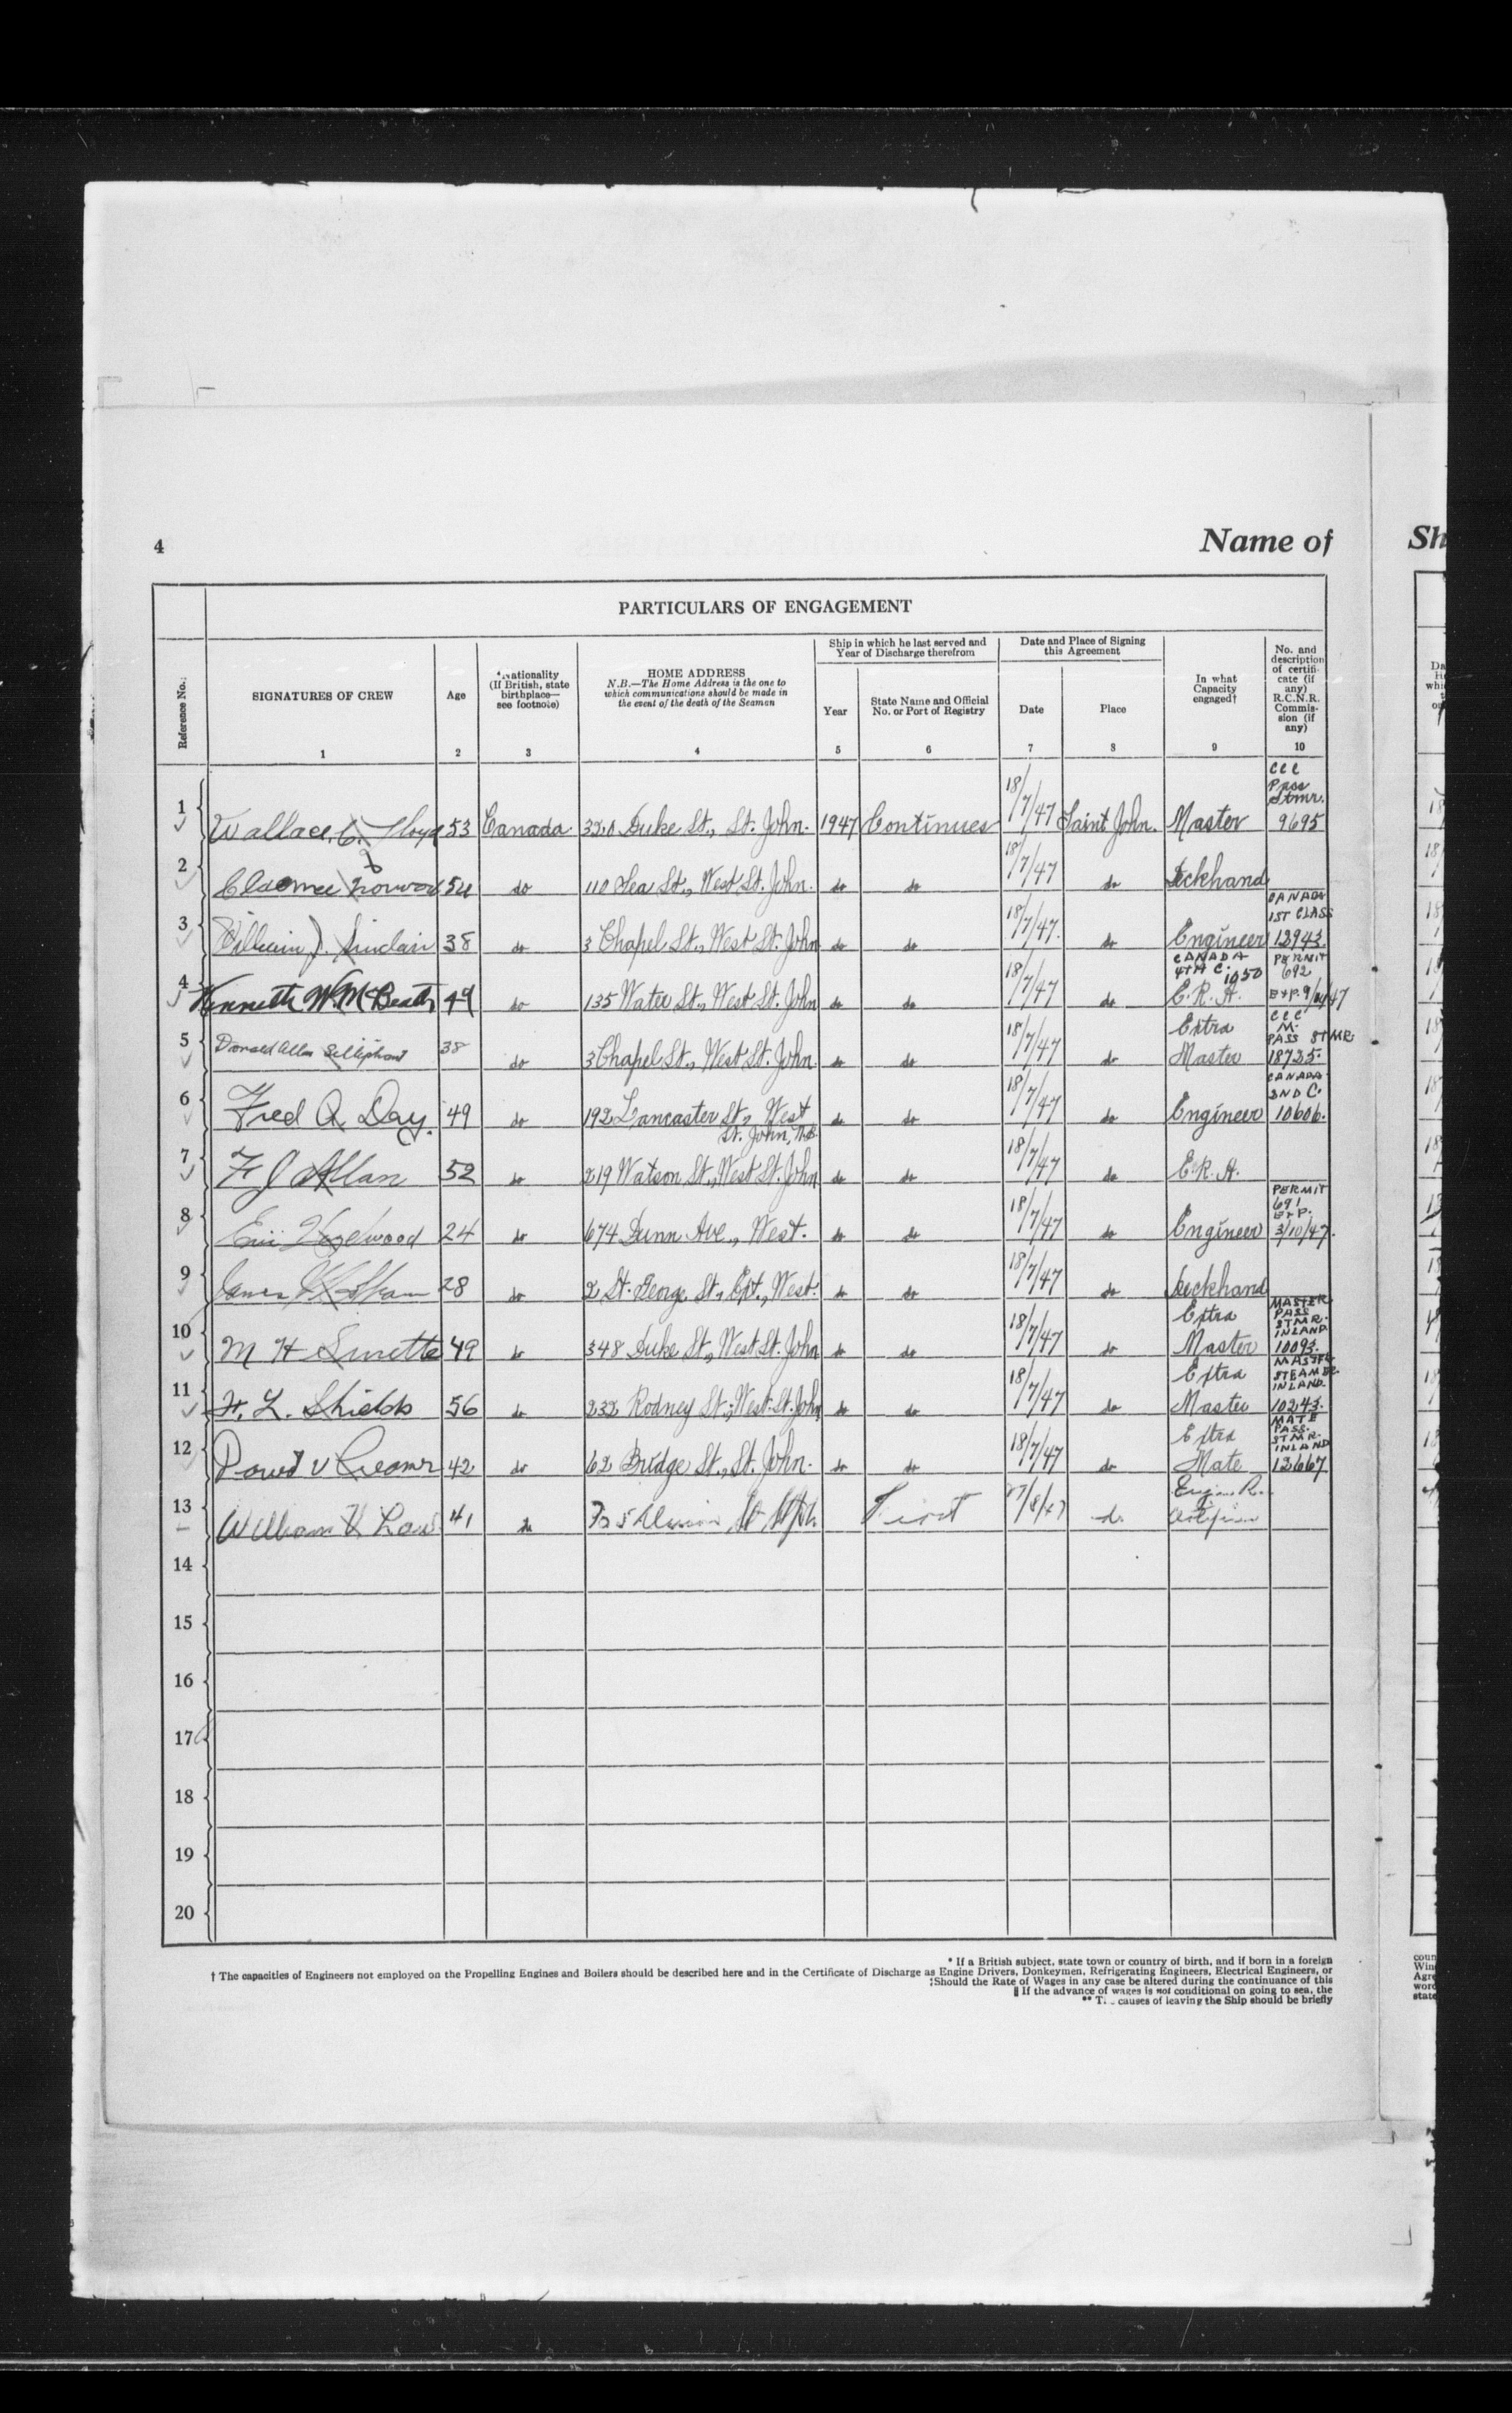 4
Name of
Sh
PARTICULARS OF ENGAGEMENT
Reference No.
SIGNATURES OF CREW
Age
*Nationality
(If British, state
birthplace—
see footnote)
HOME ADDRESS
N.B.—The Home Address is the one to
which communications should be made in
the event of the death of the Seaman
Ship in which he last served and
Year of Discharge therefrom
Year
State Name and Official
No. or Port of Registry
Date and Place of Signing
this Agreement
Date
Place
In what
Capacity
engaged†
No. and
description
of certifi-
cate (if
any)
R.C.N.R.
Commis-
sion (if
any)
1 2 3 4 5 6 7 8 9 10
CCC
Pass
Stmr.
1 Wallace C. Floyd 53 Canada. 320 Duke St., St. John. 1947 Continues 18/7/47 Saint John. Master 9695
2 54 do 110 Sea St., West St. John. do do 18/7/47 do Deckhand
CANADA
1ST CLASS
3 William J. Sinclair 38 do 3 Chapel St., West St. John do do 18/7/47. do Engineer 12943.
CANADA PERMIT
4TH C. 1050 692
4 Kenneth W. McBeath 49 do 135 Water St., West St. John do do 18/7/47 do E.R.A. Exp. 9/
CCC
M.
Extra PASS STMR
5 Donald Allan 38 do 3 Chapel St., West St. John. do do 18/7/47 do Master 18735.
CANADA
2ND C.
6 Fred A Day. 49 do 192 Lancaster St., West do do 18/7/47 do Engineer 10606.
St. John, N.B.
7 F J Allan 52 do 219 Watson St., West St. John do do 18/7/47 do E.R.A.
PERMIT
691
Exp.
8 Hazelwood 24 do 674 Dunn Ave., West. do do 18/7/47 do Engineer 3/10/47.
9 James 28 do 2 St. George St., Ext., West. do do 18/7/47 do Deckhand
MASTER
PASS
Extra STMR.
INLAND
10 M H Surette 49 do 348 Duke St., West St. John do do 18/7/47 do Master 10093.
MASTER
Extra STEAMER
INLAND
11 H. L. Shields 56 do 232 Rodney St., West St. John do do 18/7/47 do Master 10243.
MATE
PASS.
Extra STMR.
INLAND
12 David V Creamer 42 do 62 Bridge St., St. John. do do 18/7/47 do Mate 12667
Engine R.
13 William H Law 41 do First 27/8/47 do
14
15
16
17
18
19
20
* If a British subject, state town or country of birth, and if born in a foreign
† The capacities of Engineers not employed on the Propelling Engines and Boilers should be described here and in the Certificate of Discharge as Engine Drivers, Donkeymen, Refrigerating Engineers, Electrical Engineers, or
‡Should the Rate of Wages in any case be altered during the continuance of this
‖ If the advance of wages is not conditional on going to sea, the
** The causes of leaving the Ship should be briefly